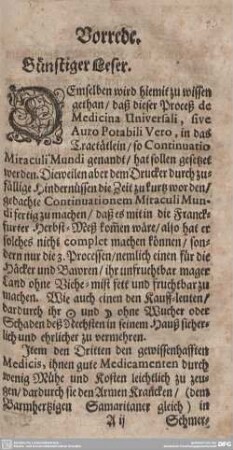 Vorrede.
Günstiger Leser.
DEmselben wird hiemit zu wissen
gethan / daß dieser Proceß de
Medicina Universali, sive
Auro Potabili Vero, in das
Tractätlein / so Continuatio
Miraculi Mundi genandt / hat sollen gesetzet
werden. Dieweilen aber dem Drucker durch zu-
fällige Hindernüssen die Zeit zu kurtz worden /
gedachte Continuationem Miraculi Mun-
di fertig zu machen / daß es mit in die Franck-
furter Herbst-Meß kom̃en wäre / also hat er
solches nicht complet machen können / son-
dern nur die 3. Processen / nemlich einen für die
Häcker und Bawren / ihr unfruchtbar mager
Land ohne Viehe-mist fett und fruchtbar zu
machen. Wie auch einen den Kauff-leuten /
dardurch ihr ☉ und ☽ ohne Wucher oder
Schaden deß Nechsten in seinem Hauß sicher-
lich und ehrlicher zu vermehren.
Item den Dritten den gewissenhafften
Medicis, ihnen gute Medicamenten durch
wenig Mühe und Kosten leichtlich zu zeu-
gen / dardurch sie den Armen Krancken / (dem
Barmhertzigen Samaritaner gleich) in
A ij Schmer-